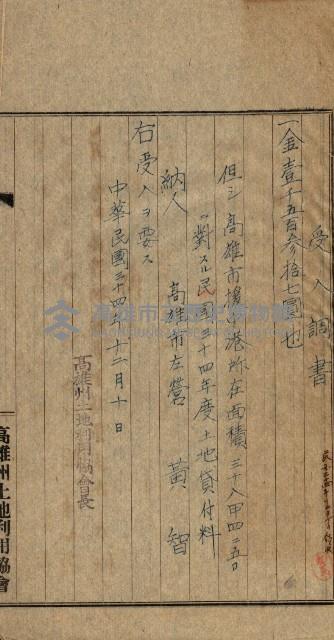 受入調書
一金壹千五百參拾七圓也
但シ高雄市援[港]所在面積三十八甲四二五〇
ニ對スル民國三十四年度土地貸付料
納人 高雄市左營 黃智
右受入ヲ要ス
中華民國三十四年十二月十日
高雄州土地利用協會長
高雄州土地利用協會
高雄市立歷史博物館